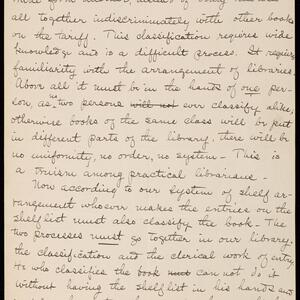 all together indiscriminately with other books
on the tariff. This classification requires wide
knowledge and is a difficult process. It requires
familiarity with the arrangement of libraries.
Above all it must be in the hands of one per-
son, as two persons will not ever classify alike,
otherwise books of the same class will be put
in different parts of the library, there will be
no uniformity, no order, no system - This is
a truism among practical librarians -
Now according to our system of shelf ar-
rangement whoever makes the entries on the
shelf list must also classify the book - The
two processes must go together in our library
the classification and the clerical work of entry,
He who classifies the book must can not do it
without having the shelf list in his hands and